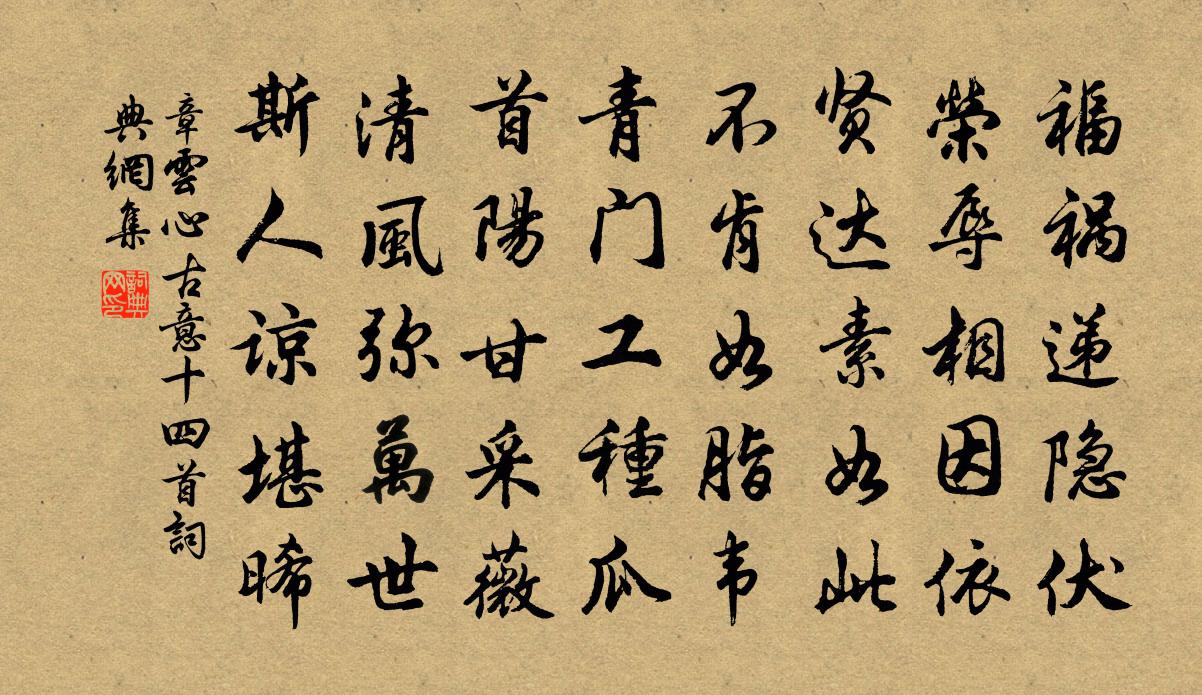 福祸递隐伏
榮辱相因依
贤达素如此
不肯如脂韦
青门工種瓜
首陽甘采薇
清風弥萬世
斯人谅堪晞
章雲心古意十四首詞
典網集
詞典
网印